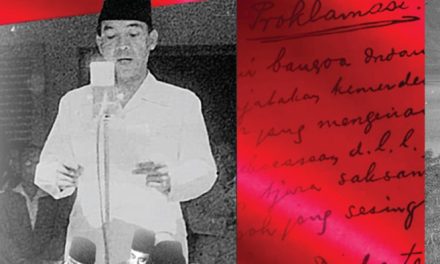 Proklamasi.
i bangsa Indon
jatakan kemerde
jang mengenai
koeasaan d.l.l.
tjara saksam
jang sesing